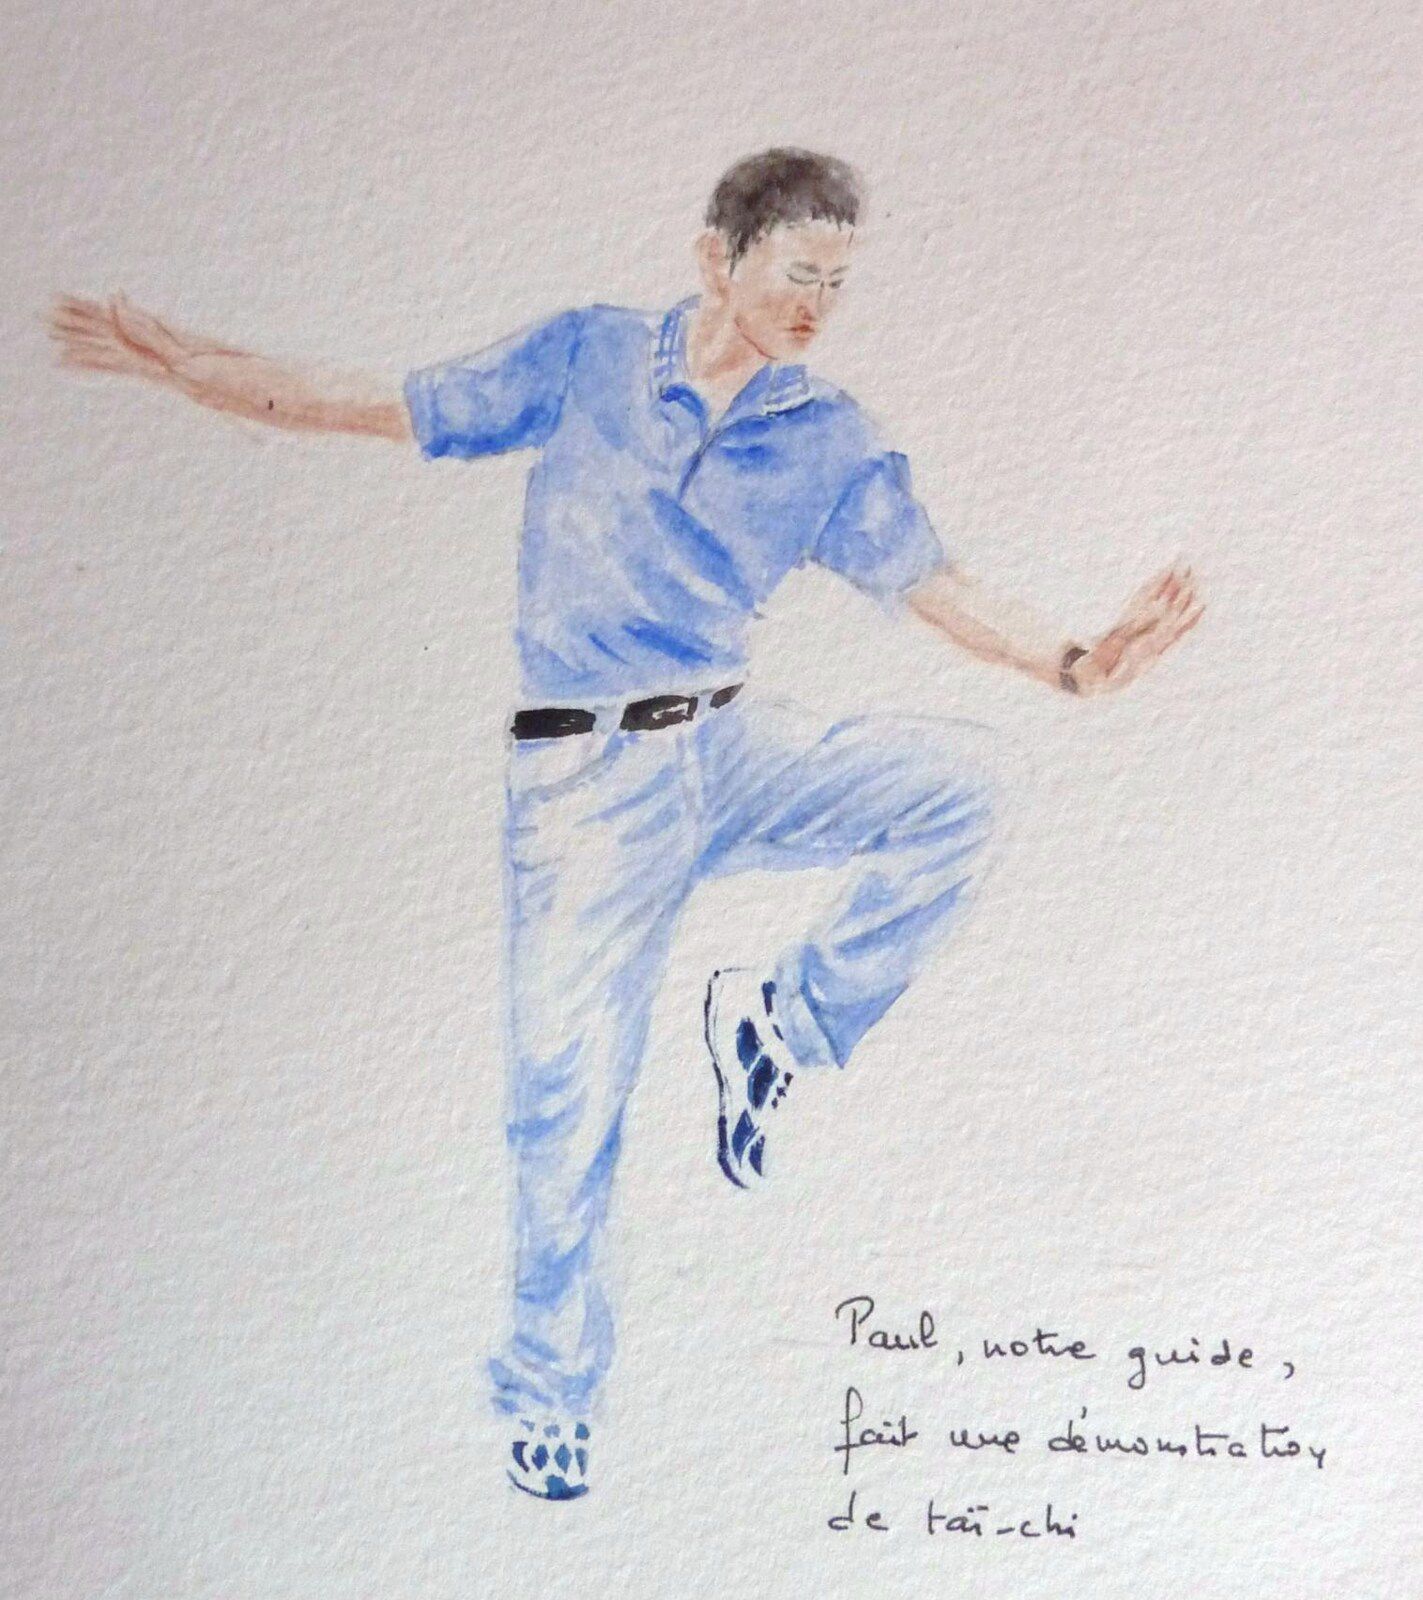 Paul, notre guide,
fait une démonstration
de taï-chi